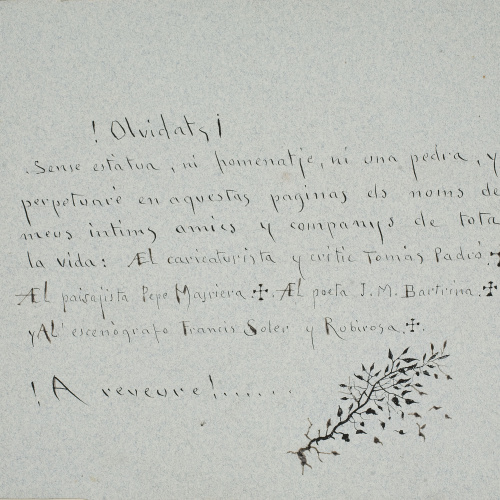 ! Olvidats ¡
Sense estàtua, ni homenatje, ni una pedra, y
perpetuaré en aquestas paginas els noms de
meus intims amics y companys de tota
la vida: Æl caricaturista y critic Tomás Padró ✠
Æl paisajista Pepe Masriera ✠. Æl poeta J. M. Bartrina ✠
y AL' escenògrafo Francis Soler y Robirosa ✠.
! A reveure !......